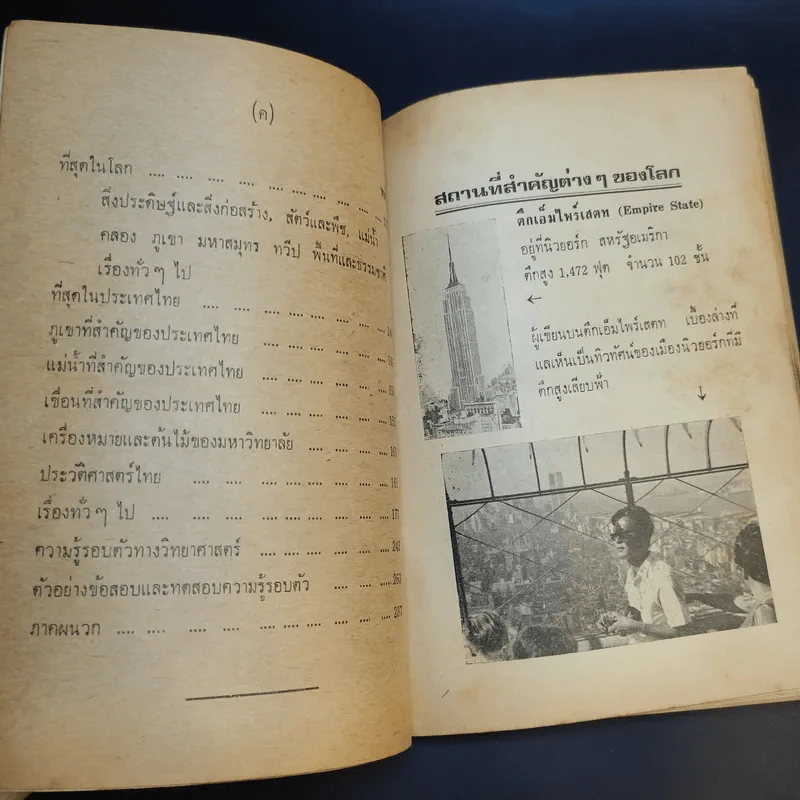 (ค)
ที่สุดในโลก .... .... .... .... .... .... .... .... ....
สิ่งประดิษฐ์และสิ่งก่อสร้าง, สัตว์และพืช, แม่น้ำ
คลอง ภูเขา มหาสมุทร ทวีป พื้นที่และธรรมชาติ
เรื่องทั่ว ๆ ไป
ที่สุดในประเทศไทย .... .... .... .... .... .... ....
ภูเขาที่สำคัญของประเทศไทย .... .... .... .... ....
แม่น้ำที่สำคัญของประเทศไทย .... .... .... .... ....
เขื่อนที่สำคัญของประเทศไทย .... .... .... .... ....
เครื่องหมายและต้นไม้ของมหาวิทยาลัย .... .... .... ....
ประวัติศาสตร์ไทย .... .... .... .... .... .... ....
เรื่องทั่ว ๆ ไป .... .... .... .... .... .... .... 171
ความรู้รอบตัวทางวิทยาศาสตร์ .... .... .... .... .... 243
ตัวอย่างข้อสอบและทดสอบความรู้รอบตัว .... .... .... 263
ภาคผนวก .... .... .... .... .... .... .... .... .... 287
สถานที่สำคัญต่าง ๆ ของโลก
ตึกเอ็มไพร์เสตท (Empire State)
อยู่ที่นิวยอร์ก สหรัฐอเมริกา
ตึกสูง 1,472 ฟุต จำนวน 102 ชั้น
←
ผู้เขียนบนตึกเอ็มไพร์เสตท เบื้องล่างที่
แลเห็นเป็นทิวทัศน์ของเมืองนิวยอร์กที่มี
ตึกสูงเสียบฟ้า
↓